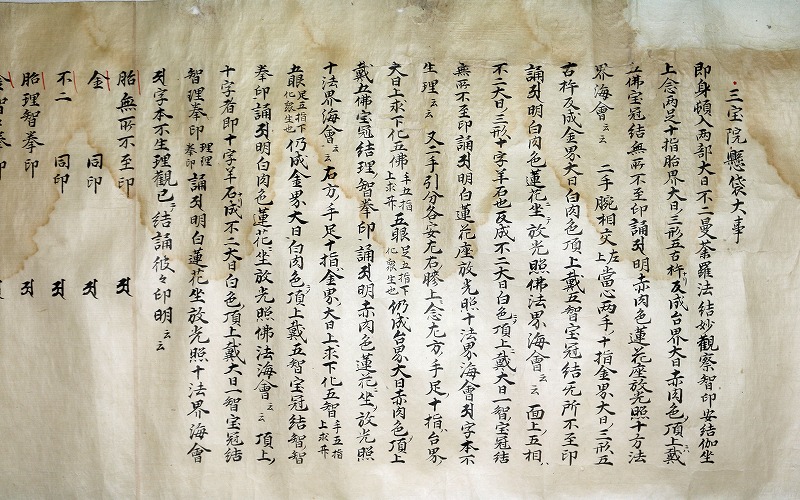 三宝院懸袋大事
即身頓入両部大日不二曼荼羅法結妙観察智印安結伽坐
上念両足十指胎界大日三形五古杵反成台界大日赤肉色頂上戴
五佛宝冠結無所不至印誦𑖀明赤肉色蓮花座放光照十方法
界海會云云 二手腕相交左上當心両手十指金界大日三形五
古杵反成金界大日白肉色頂上戴五智宝冠結无所不至印
誦𑖀明白肉色蓮花坐放光照佛法界海會云云 面上五相
不二大日三形十字羊石也反成不二大日白色頂上戴大日一智宝冠結
無所不至印誦𑖀明白蓮花座放光照十法界海會𑖀字本不
生理云云 又二手引分各安左右膝上念左方手足十指台界
大日上求下化五佛手五指上求并五眼足五指下化衆生也仍成台界大日赤肉色頂上
戴五佛宝冠結理智拳印誦𑖀明赤肉色蓮花坐放光照
十法界海會云云右方手足十指金界大日上求下化五智手五指上求并
五眼足五指下化衆生也仍成金界大日白肉色頂上戴五智宝冠結智
拳印誦𑖀明白肉色蓮花坐放光照佛法海會云云 頂上
十字者即十字羊石成不二大日白色頂上戴大日一智宝冠結
智理拳印理理拳印誦𑖀明白蓮花坐放光照十法界海會
𑖀字本不生理觀已結誦彼々印明云云
胎 無所不至印 𑖀
金 同印 𑖀
不二 同印 𑖀
胎理智拳印 𑖀